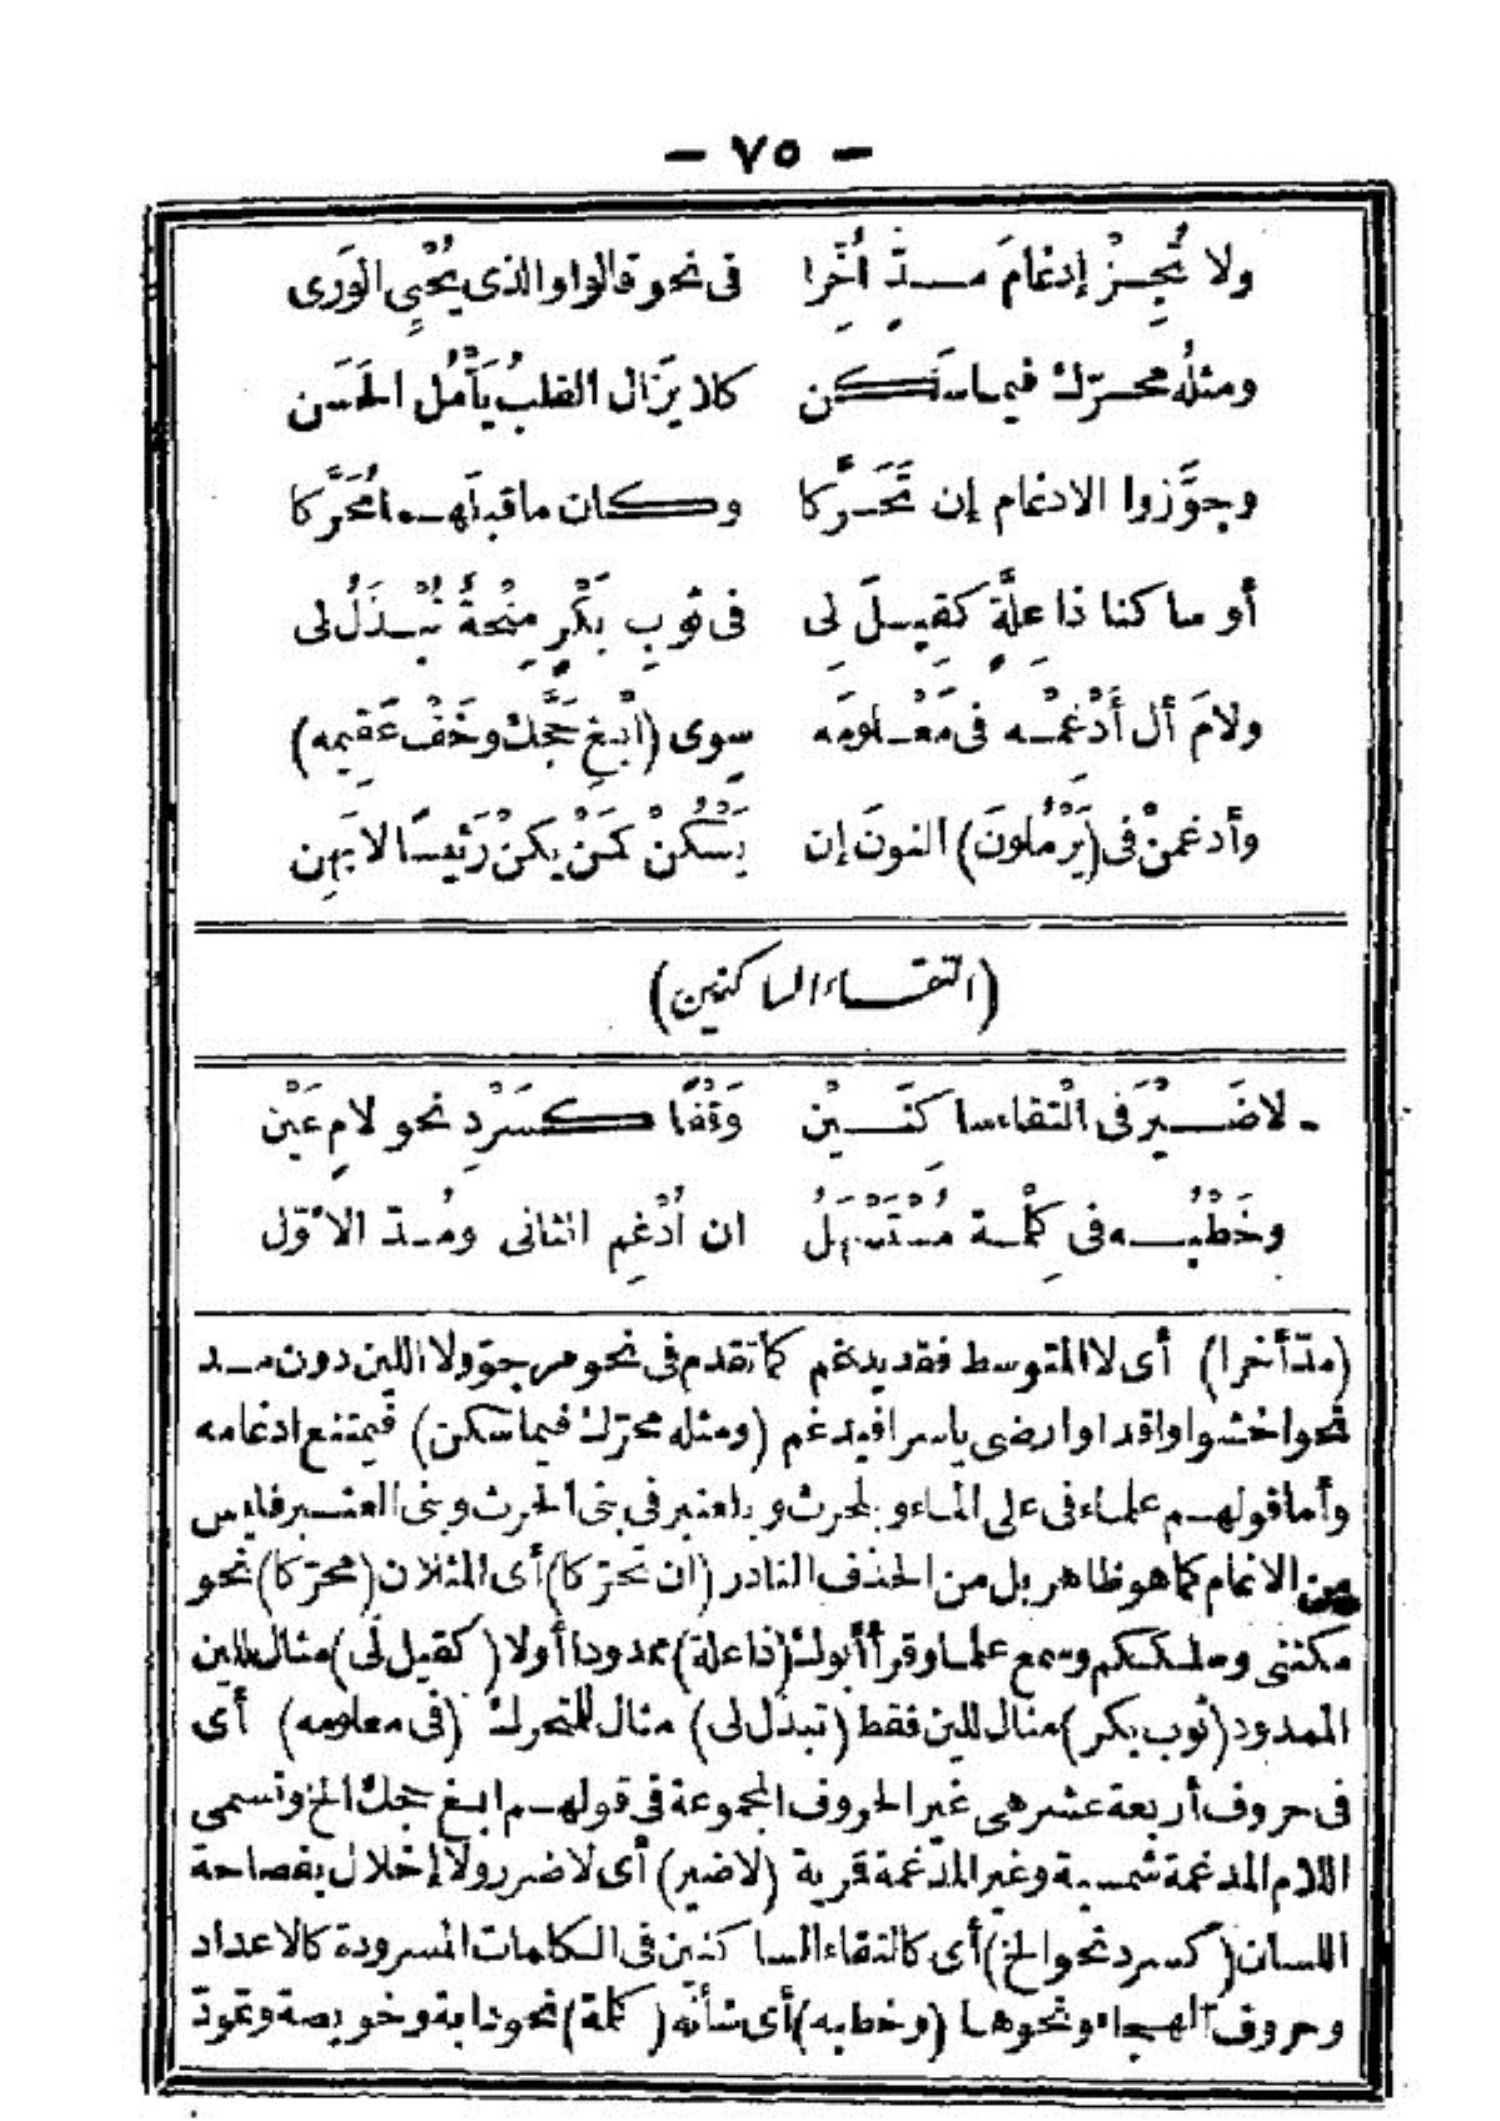 - ٧٥ -
ولا تُجِزْ إدغامَ مدٍّ أُخِّرا في نحو قالوا والذي يُحْيِي الوَرى
ومثلُه محرّك فيما سَكن كلا يَزَال القلبُ يَأْمُل الحَسَن
وجوَّزوا الادغام إن تَحَرَّكا وكان ما قبلَهما مُحَرَّكا
أو ساكنا ذا عِلَّةٍ كَقِيلَ لِي في ثوبِ بَكْرٍ مِنْحةٌ تُبْذَلُ لي
ولامَ أل أَدْغِمْه في مَعْلومَه سِوى (ابْغِ حَجَّك وخَفْ عَقِيمه)
وأدغمنْ في (يَرْمُلونَ) النونَ إن يَسْكُنْ كمَنْ يكنْ رَئيسًا لا يَهِن
(التقاء الساكنين)
- لا ضَيْرَ في الْتقاء ساكِنَيْن وَقْفًا كسَرْدِ نحو لامِ عَيْن
وخَطْبُه في كِلْمة مُسْتَسْهَلُ ان أُدْغِم الثاني ومُدّ الاوّل
(مدّ أخرا) أي لا المتوسط فقد يدغم كما تقدم في نحو مرجوّ ولا اللين دون مد
نحو اخشوا واقدا وارضى ياسرا فيدغم (ومثله محرّك فيما سكن) فيمتنع ادغامه
وأما قولهم علماء في على الماء وبلحرث وبلعنبر في بنى الحرث وبنى العنبر فليس
من الادغام كما هو ظاهر بل من الحذف النادر (ان تحرّكا) أي المثلان (محرّكا) نحو
مكننى وسلككم وسمع علما وقرأ أبوك (ذا علة) ممدودا أولا (كقيل لى) مثال للين
الممدود (ثوب بكر) مثال للين فقط (تبذل لى) مثال للمتحرك (في معلومه) أي
في حروف أربعة عشر هي غير الحروف المجموعة في قولهم ابغ حجك الخ وتسمى
اللام المدغمة شمسية وغير المدّغمة قمرية (لا ضير) أي لا ضرر ولا إخلال بفصاحة
اللسان (كسرد نحو الخ) أي كالتقاء الساكنين في الكلمات المسرودة كالاعداد
وحروف الهجاء ونحوها (وخطبه) أي شأنه (كلمة) نحو دابة وخويصة وتمودّ